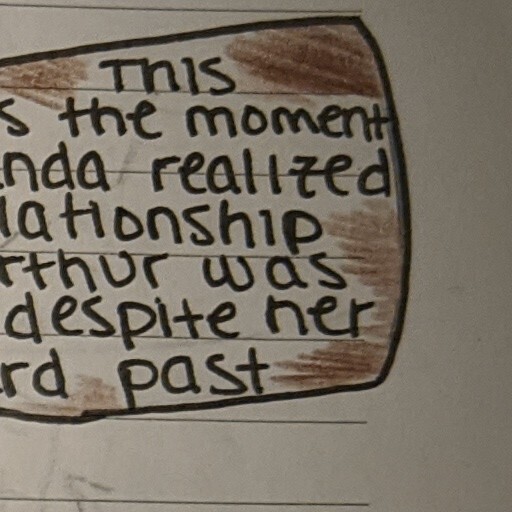 This
s the moment
nda realized
lationship
rthur was
despite her
rd past